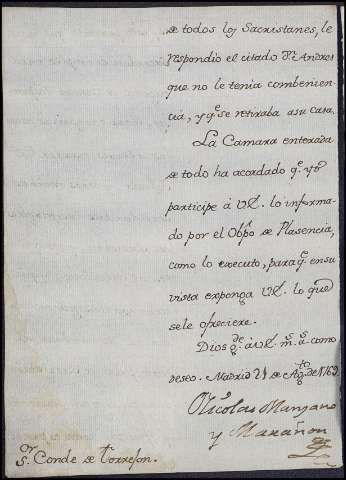 de todos los Sacristanes, le
respondio el citado Dn. Andres
que no le tenia combenien-
cia, y qe. se retiraba a su casa.
La Camara enterada
de todo ha acordado qe. yo
participe á V.S. lo informa-
do por el Obpo. de Plasencia,
como lo executo, para qe. en su
vista exponga V.S. lo que
se le ofreciere.
Dios gde. á V.S. ms. as. como
deseo. Madrid 21 de Agto. de 1769.
Nicolas Manzano
y Marañon
Sor. Conde de Torrejon.